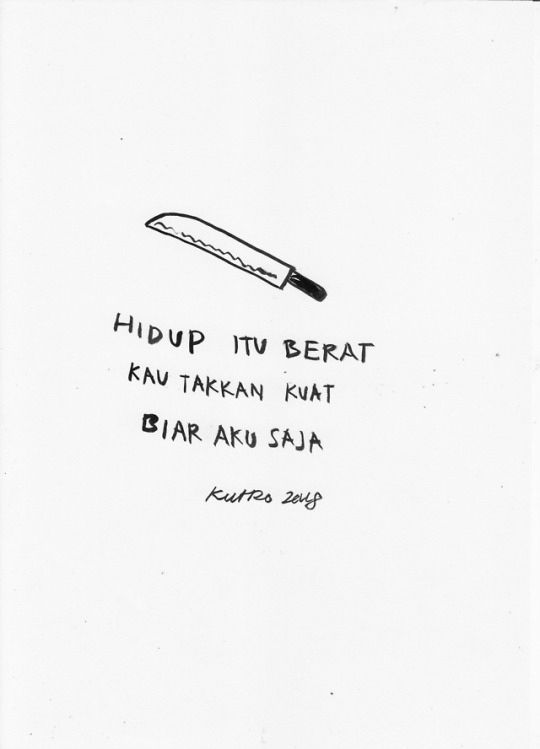 HIDUP ITU BERAT
KAU TAKKAN KUAT
BIAR AKU SAJA
2018